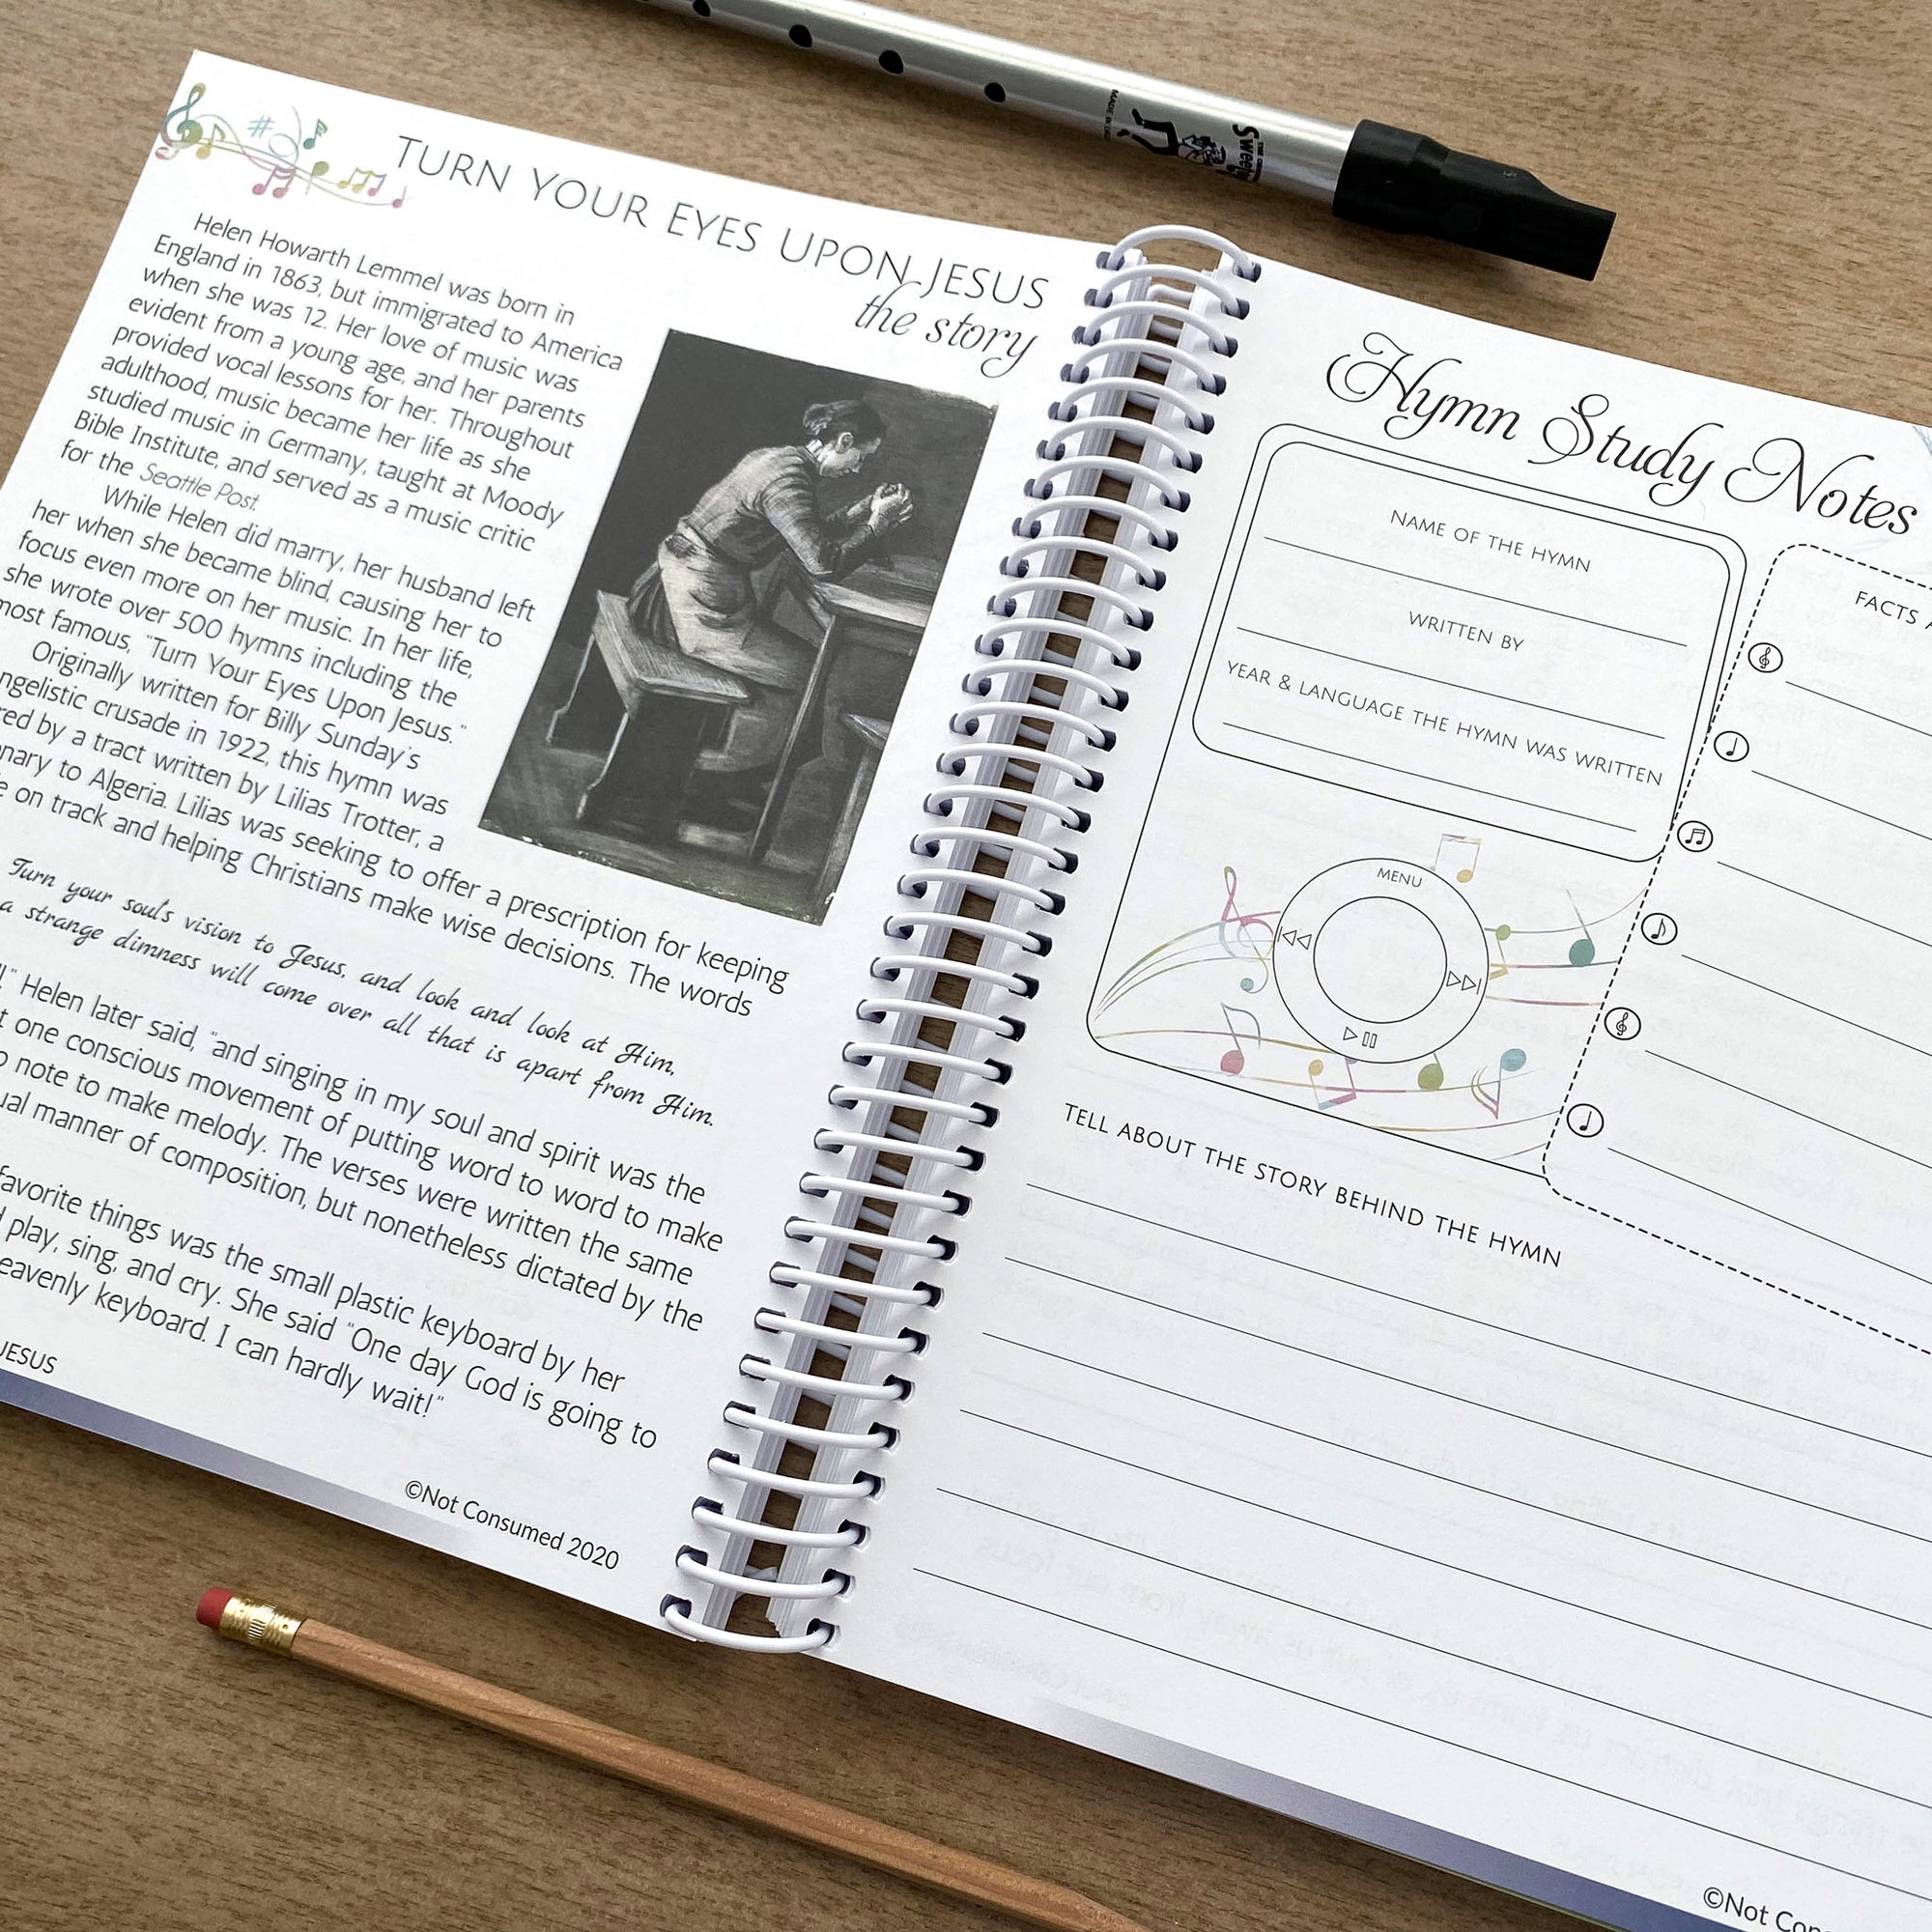 MADE IN
THE ORIGINAL
TURN YOUR EYES UPON JESUS
the story
Helen Howarth Lemmel was born in
England in 1863, but immigrated to America
when she was 12. Her love of music was
evident from a young age, and her parents
provided vocal lessons for her. Throughout
adulthood, music became her life as she
studied music in Germany, taught at Moody
Bible Institute, and served as a music critic
for the Seattle Post.
While Helen did marry, her husband left
her when she became blind, causing her to
focus even more on her music. In her life,
she wrote over 500 hymns including the
most famous, "Turn Your Eyes Upon Jesus."
Originally written for Billy Sunday's
crusade in 1922, this hymn was
by a tract written by Lilias Trotter, a
to Algeria. Lilias was seeking to offer a prescription for keeping
on track and helping Christians make wise decisions. The words
Turn your soul's vision to Jesus, and look and look at Him,
a strange dimness will come over all that is apart from Him.
Helen later said, "and singing in my soul and spirit was the
one conscious movement of putting word to word to make
note to make melody. The verses were written the same
manner of composition, but nonetheless dictated by the
favorite things was the small plastic keyboard by her
play, sing, and cry. She said "One day God is going to
keyboard. I can hardly wait!"
JESUS
©Not Consumed 2020
Hymn Study Notes
NAME OF THE HYMN
WRITTEN BY
YEAR & LANGUAGE THE HYMN WAS WRITTEN
MENU
FACTS
TELL ABOUT THE STORY BEHIND THE HYMN
©Not